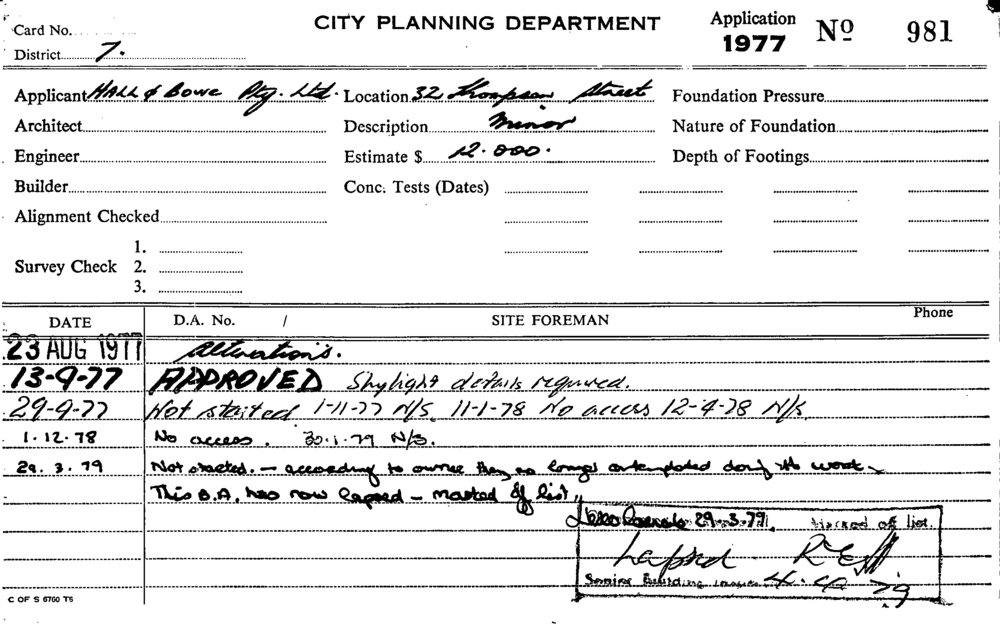 Card No.
CITY PLANNING DEPARTMENT
Application
1977
No 981
District 7.
Applicant HALL & Bowe Pty. Ltd.
Location 32 Thompson Street
Foundation Pressure
Architect
Description Minor
Nature of Foundation
Engineer
Estimate $ 12.000.
Depth of Footings
Builder
Conc. Tests (Dates)
Alignment Checked
1.
Survey Check 2.
3.
DATE D.A. No. / SITE FOREMAN Phone
23 AUG 1977 Alterations.
13-9-77 APPROVED Skylight details required.
29-9-77 Not started 1-11-77 N/S. 11-1-78 No access 12-4-78 N/s
1.12.78 No access. 30.1.79 N/S.
29.3.79 Not started. — according to owner they no longer contemplated doing the work.
This B.A. has now lapsed — marked off list.
29-3-79. Marked off list.
Lapsed
Senior Building 4.4.79
C OF S 6760 T6